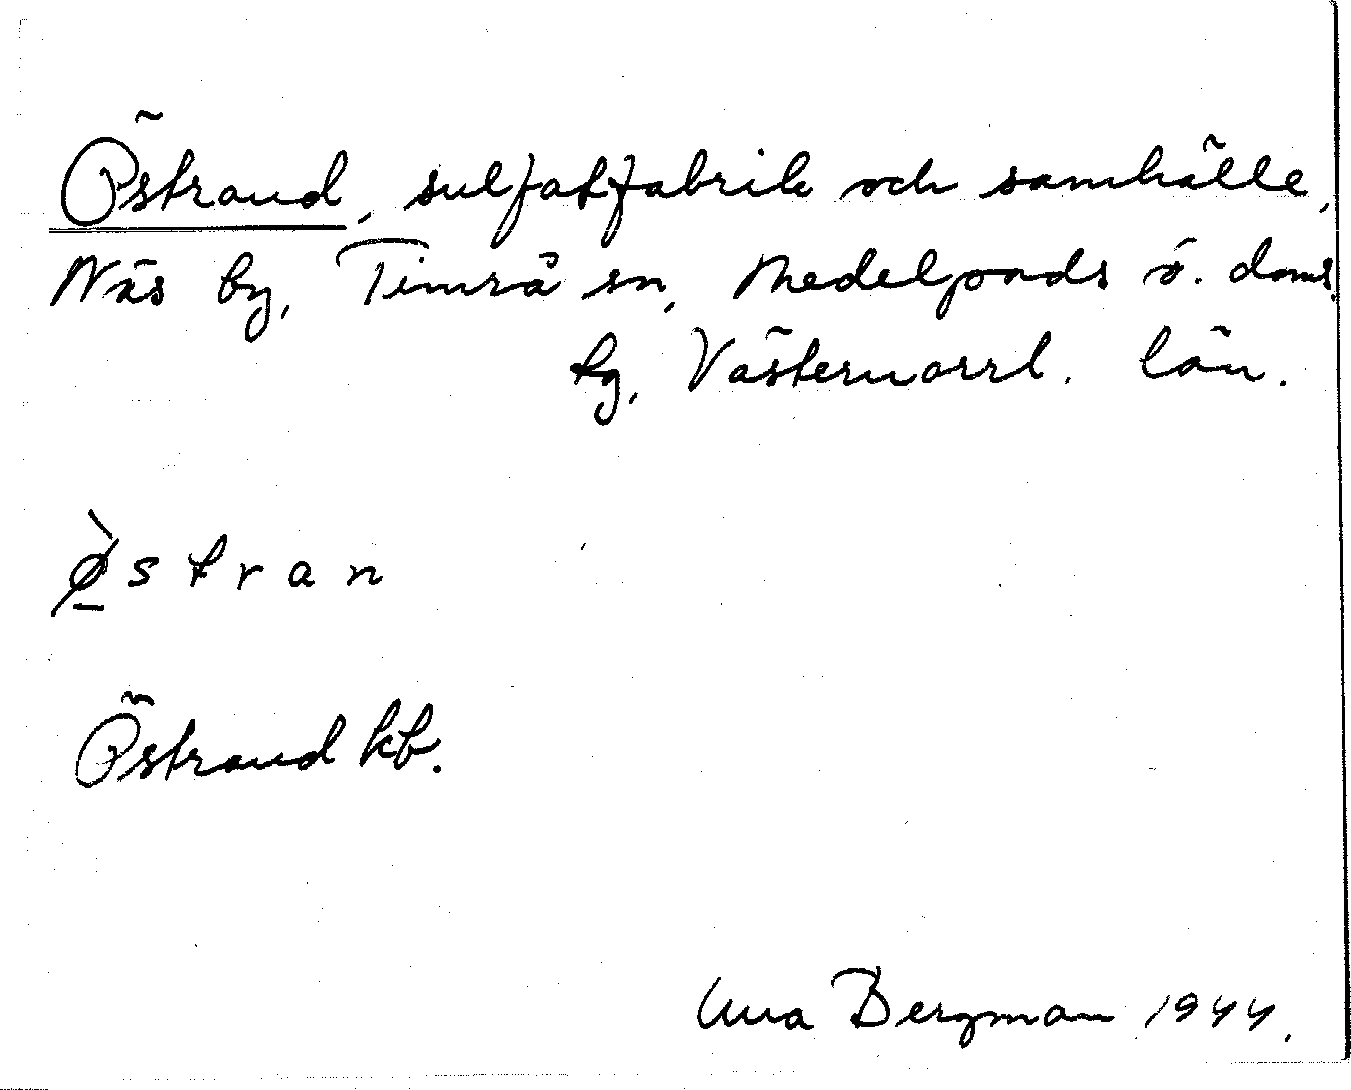 Östrand, sulfatfabrik och samhälle,
Näs by, Timrå sn, Medelpads ö. doms.
tg, Västernorrl. län.
ø̱̀stran
Östrand kb.
Bergman 1944.